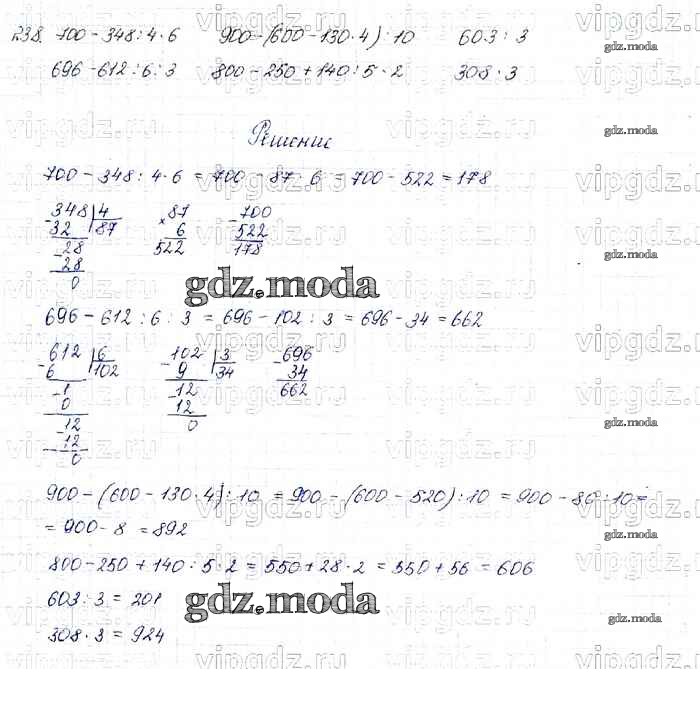 238. 700-348:4·6 900-(600-130·4):10 603:3
696-612:6:3 800-250+140:5·2 308·3
gdz.moda
Решение
700-348:4·6=700-87·6=700-522=178
348|4 87 700
-32 87 ×6 -522
-28 522 178
28
0
gdz.moda
696-612:6:3=696-102:3=696-34=662
612|6 102|3 696
-6 102 -9 34 -34
-1 -12 662
0 12
-12 0
12
0
900-(600-130·4):10=900-(600-520):10=900-80:10=
=900-8=892
800-250+140:5·2=550+28·2=550+56=606
603:3=201
gdz.moda
308·3=924
vipgdz.ru